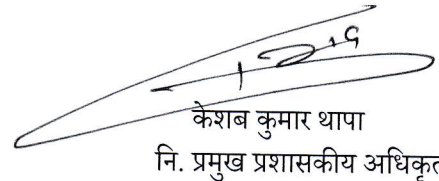 केशब कुमार थापा
नि. प्रमुख प्रशासकीय अधिकृत